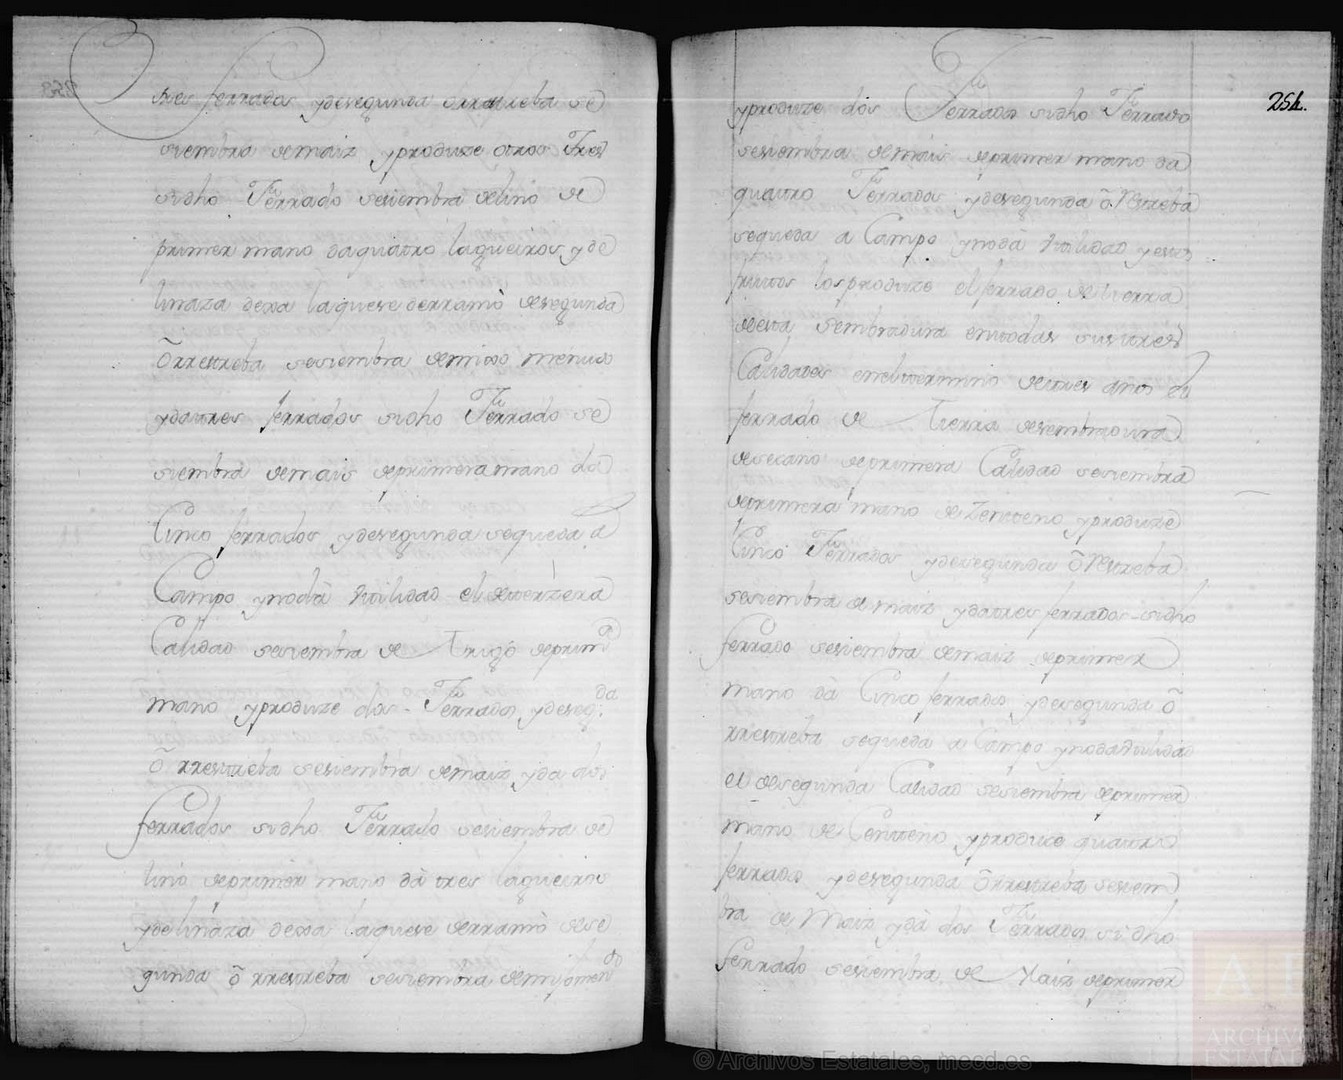 tres ferrados ydesegunda órrettreba se
siembra demaiz yproduze otros Tres
sidho Ferrado sesiembra delino de
primer mano daquatro lagueiros yde
linaza dexa laquese derramò desegunda
òrrestreba sesiembra demixo menudo
ydatres ferrados sidho Ferrado se
siembra demais deprimera mano dà
Cinco ferrados ydesegunda sequeda a
Campo ynodà Vtilidad el detèrzèra
Calidad sesiembra de Trigo deprimª
mano yproduze dos Ferrados ydesegᵈᵃ
ò rrestreba sesiembra demaiz yda dos
ferrados sidho Ferrado sesiembra de
lino deprimer mano dà tres lagueiros
ydelinaza dexa laquese derramò dese
gunda ò rrestreba sesiembra demijomenᵈᵒ
254.
yproduze dòs Ferrados sidho Ferrado
sesiembra demais deprimer mano dà
quattro Ferrados ydesegunda òRestreba
sequeda a Campo ynodà Vtilidad yestos
frutos losproduze elferrado detierra
desta sembradura entodas sustres
Calidades eneltermino detres años el
ferrado de Tierra desembradura
desecano deprimera Calidad sesiembra
deprimera mano deZenteno yproduze
Cinco Ferrados ydesegunda òRestreba
sesiembra demaiz ydatres ferrados sidho
ferrado sesiembra demaiz deprimer
mano dà Cinco ferrados ydesegunda ò
rrestreba sequeda a Campo ynodaVtilidad
el desegunda Calidad sesiembra deprimer
mano de Centeno yproduce quattro
ferrados ydesegunda òrrestreba sesiem
bra de Maiz ydà dos Ferrados sidho
ferrado sesiembra de Maiz deprimer
© Archivos Estatales, mecd.es
AE
ARCHIVOS
ESTATALES